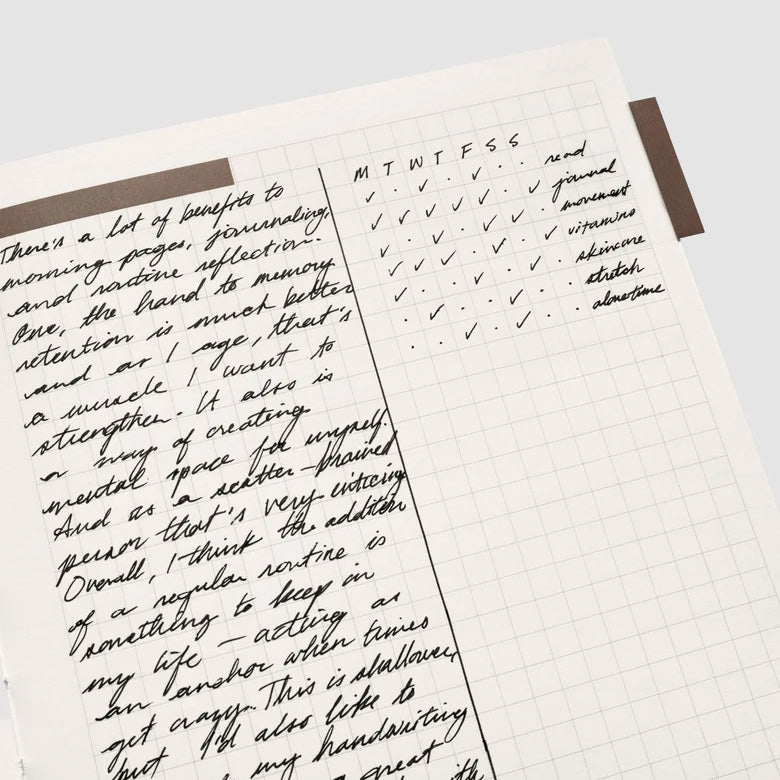 There's a lot of benefits to
morning pages, journaling,
and routine reflection.
One, the hand to memory
retention is much better
and as I age, that's
a muscle I want to
strengthen. It also is
a way of creating
mental space for myself.
And as a scatter-brained
person that's very enticing
Overall, I think the addition
of a regular routine is
something to keep in
my life — acting as
an anchor when times
get crazy. This is shallower,
but I'd also like to
my handwriting
great
with
M T W T F S S
read
journal
movement
vitamins
skincare
stretch
alonetime